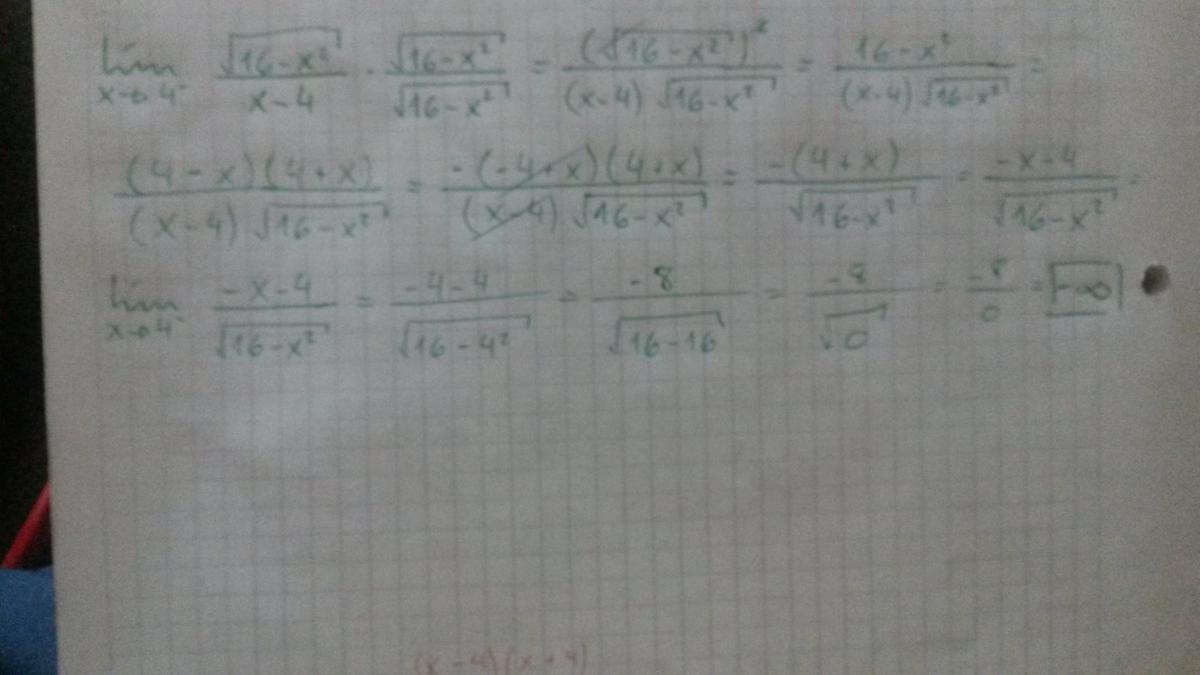 lím x→4⁻ √(16-x²)/(x-4) · √(16-x²)/√(16-x²) = (√(16-x²))²/((x-4)√(16-x²)) = (16-x²)/((x-4)√(16-x²)) =
((4-x)(4+x))/((x-4)√(16-x²)) = (-(-4+x)(4+x))/((x-4)√(16-x²)) = (-(4+x))/√(16-x²) = (-x-4)/√(16-x²) =
lím x→4⁻ (-x-4)/√(16-x²) = (-4-4)/√(16-4²) = -8/√(16-16) = -8/√0 = -8/0 = -∞
(x-4)(x+4)